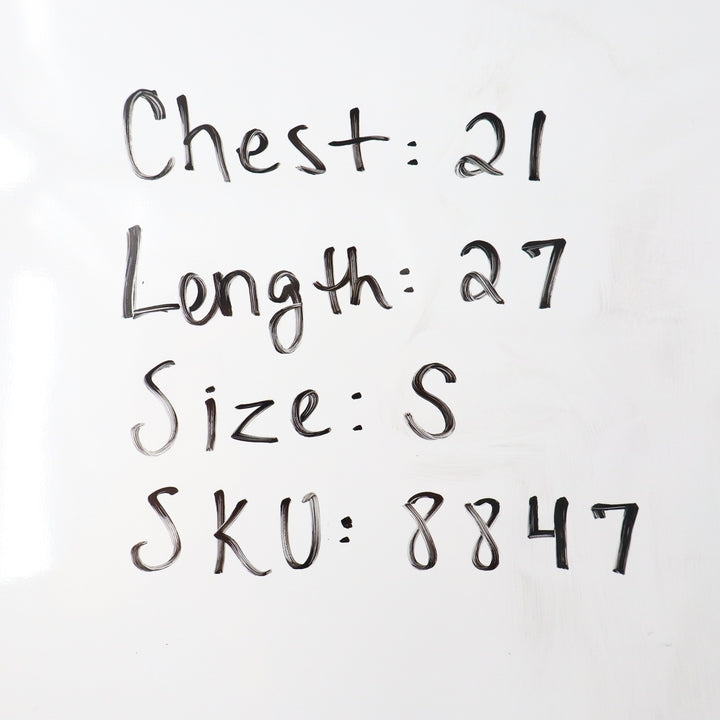 Chest: 21
Length: 27
Size: S
SKU: 8847